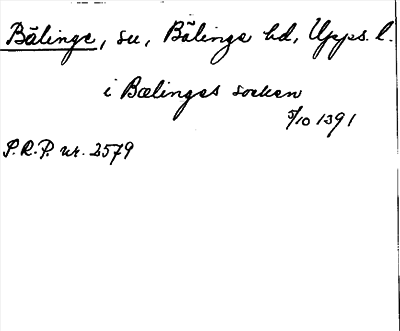 Bälinge, su, Bälinge hd, Upps. l.
i Bælinges socken
5/10 1391
P.R.P. nr. 2579